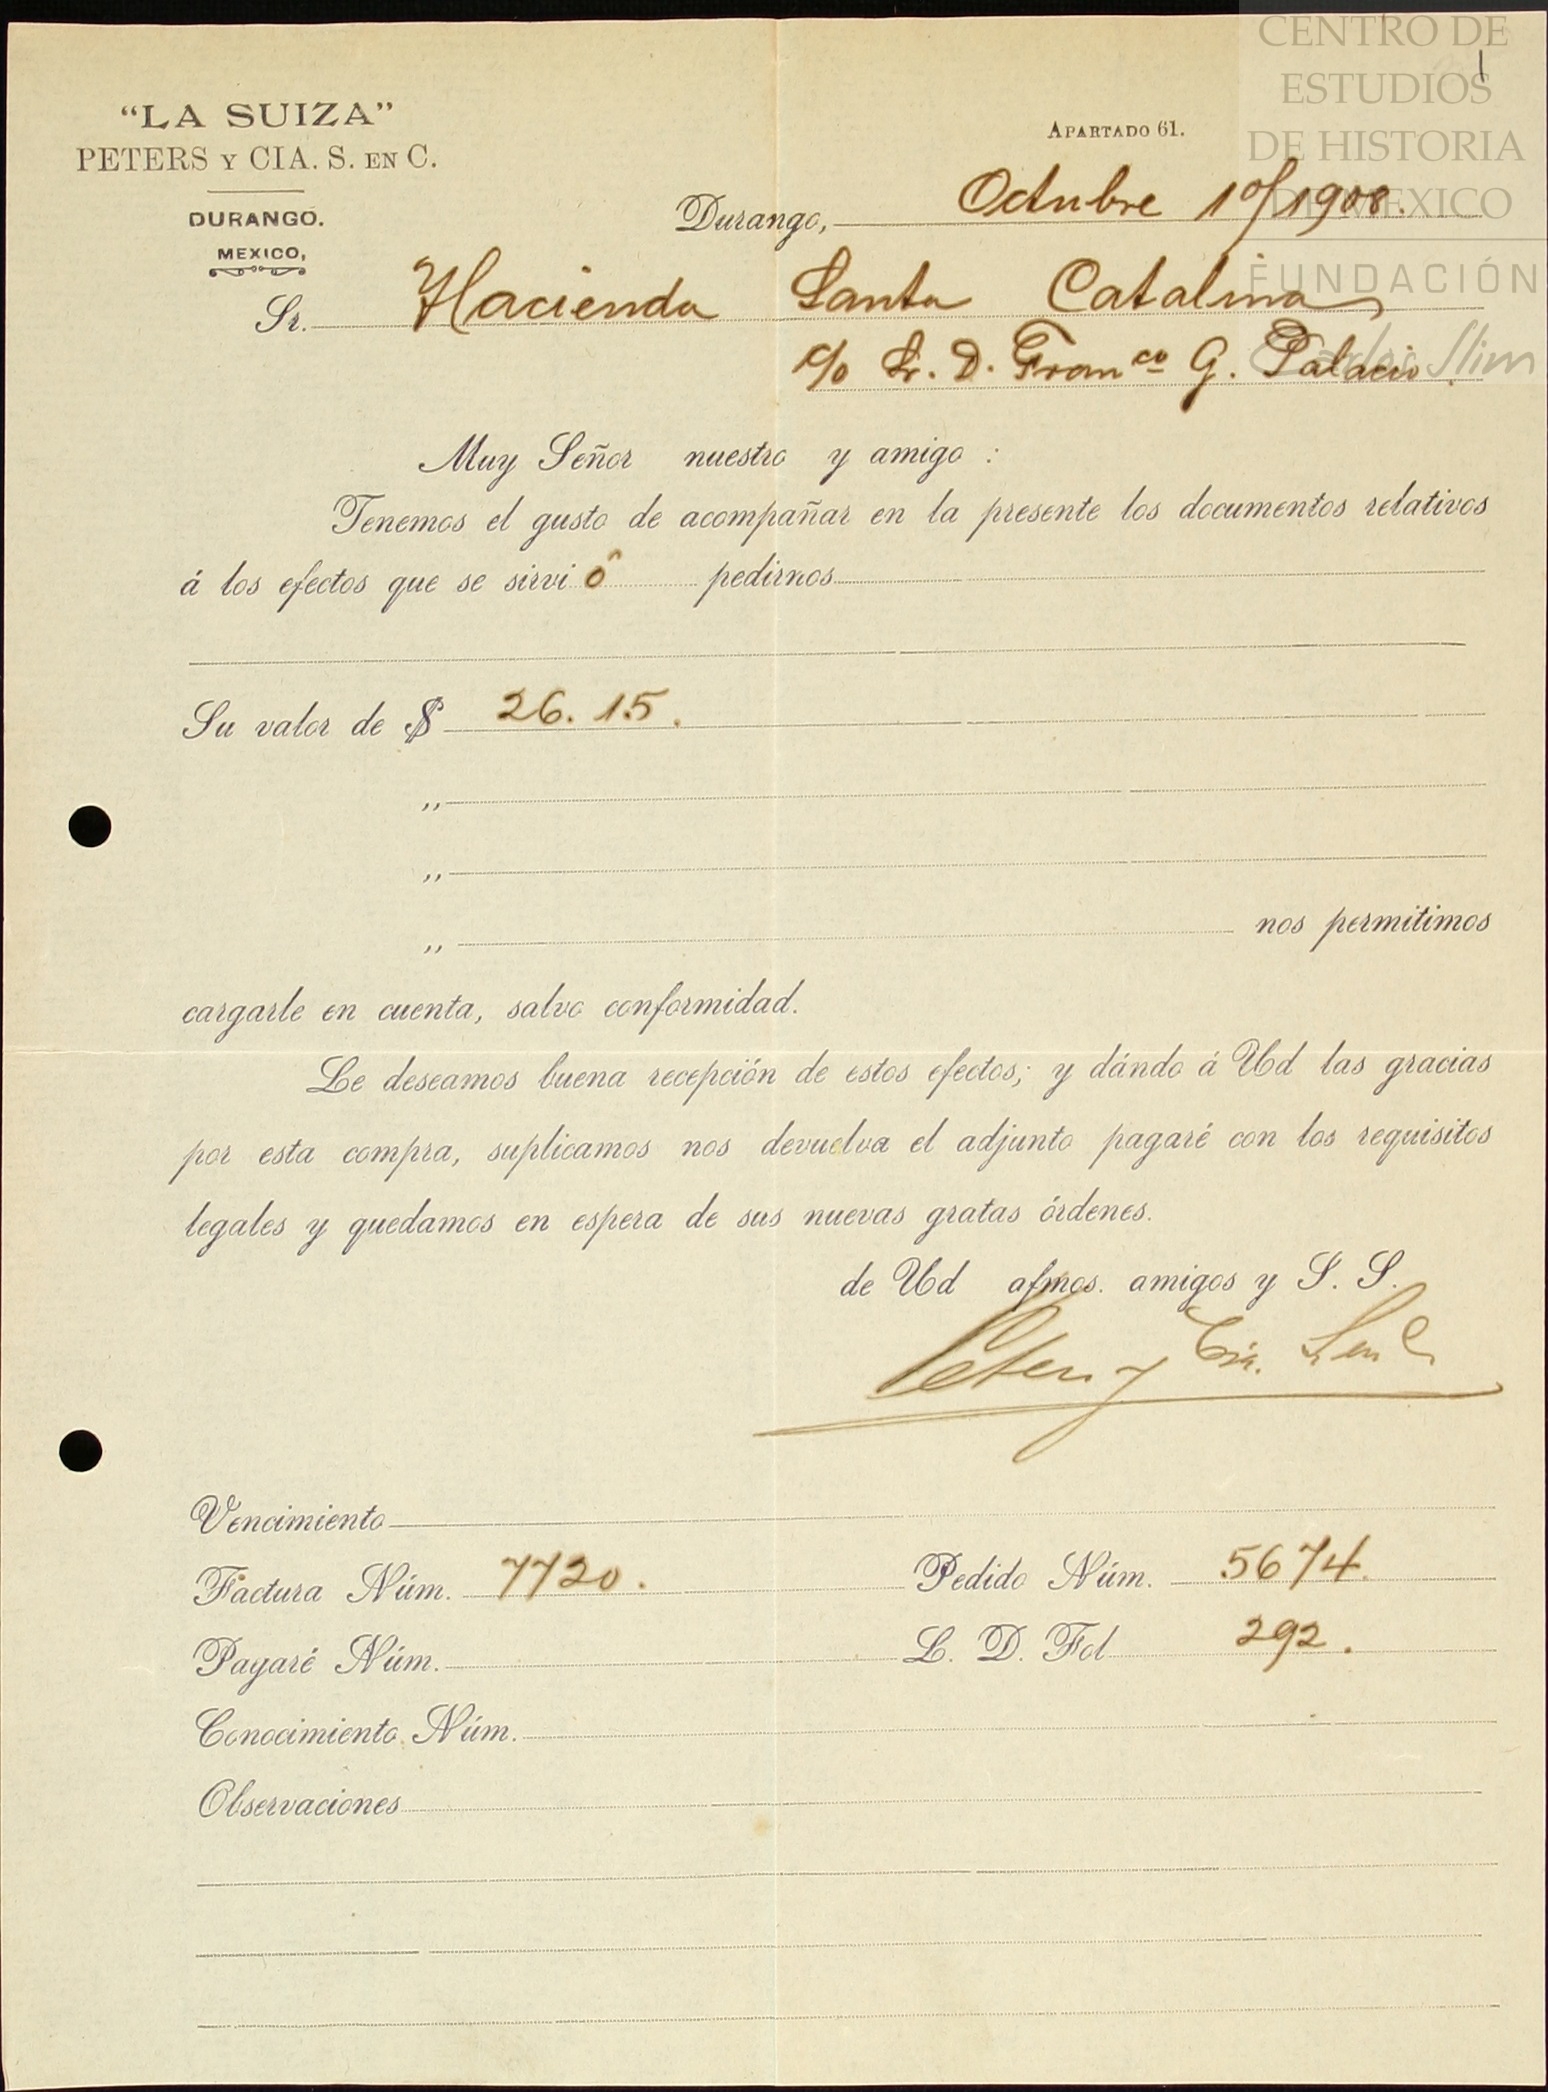 CENTRO DE
ESTUDIOS
DE HISTORIA
DE MEXICO
FUNDACIÓN
Carlos Slim
1
“LA SUIZA”
PETERS Y CIA. S. EN C.
DURANGO.
MEXICO,
APARTADO 61.
Durango, Octubre 10/1908.
Sr. Hacienda Santa Catalina
c/o Sr. D. Franco G. Palacio.
Muy Señor nuestro y amigo :
Tenemos el gusto de acompañar en la presente los documentos relativos
á los efectos que se sirvió pedirnos
Su valor de $ 26.15.
,,
,,
,, nos permitimos
cargarle en cuenta, salvo conformidad.
Le deseamos buena recepción de estos efectos; y dándo á Ud las gracias
por esta compra, suplicamos nos devuelva el adjunto pagaré con los requisitos
legales y quedamos en espera de sus nuevas gratas órdenes.
de Ud afmos. amigos y S. S.
Peters y Cia. S en C
Vencimiento
Factura Núm. 7720. Pedido Núm. 5674.
Pagaré Núm. L. D. Fol 292.
Conocimiento Núm.
Observaciones